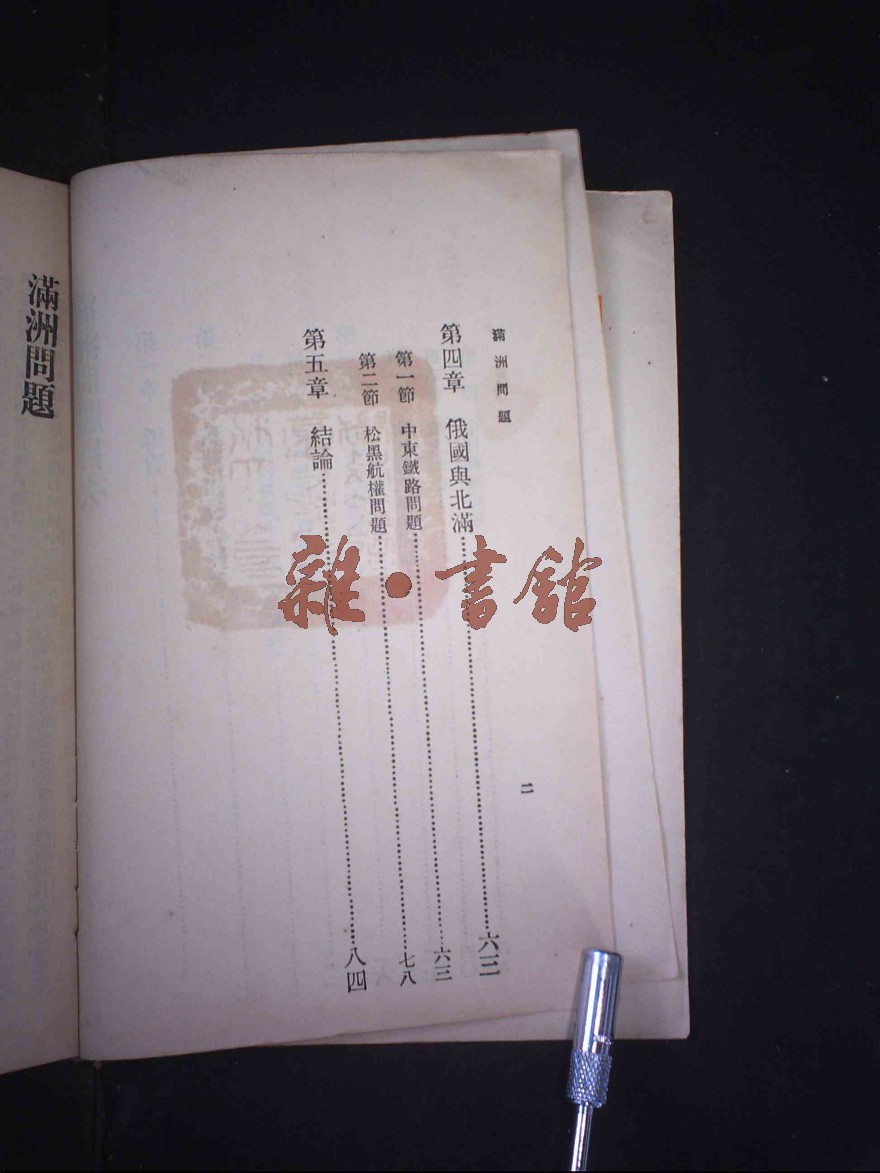 滿洲問題
第四章 俄國與北滿……六三
第一節 中東鐵路問題……六三
第二節 松黑航權問題……七八
第五章 結論……八四
二
滿洲問題
雜·書館